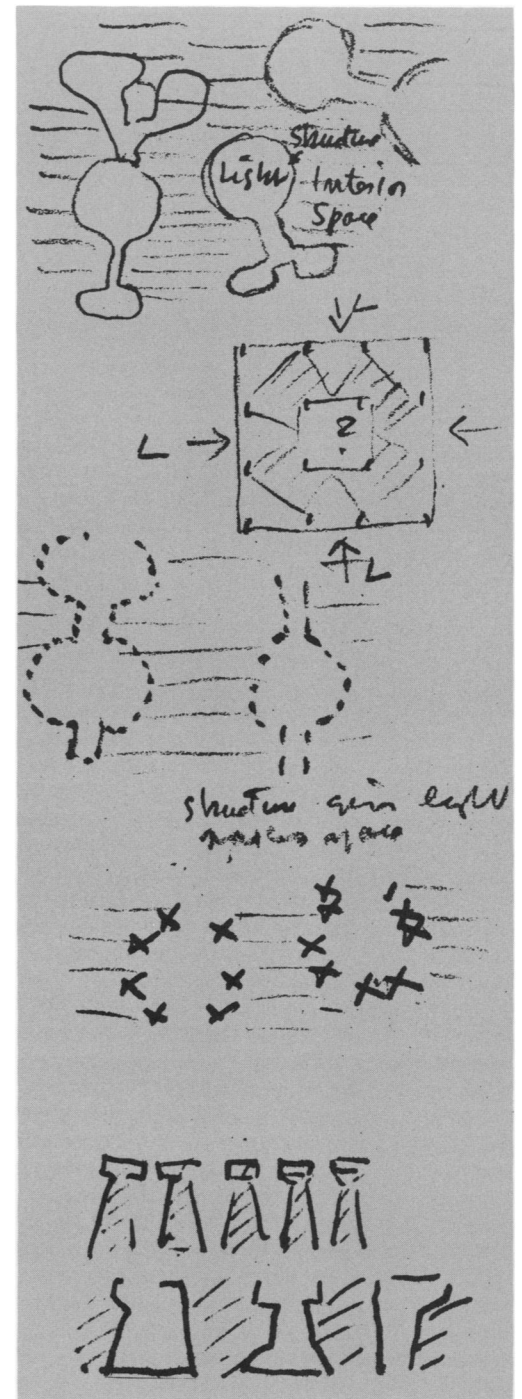 Structure
Light
Interior
Space
L
2
L
structure gives light
makes space